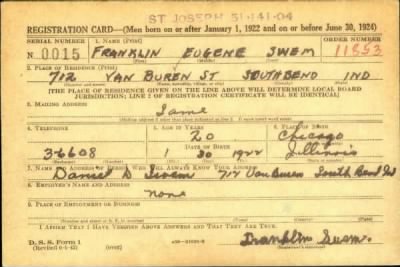 ST JOSEPH 51-141-04
REGISTRATION CARD—(Men born on or after January 1, 1922 and on or before June 30, 1924)
SERIAL NUMBER 1. NAME (Print) ORDER NUMBER
N 0015 FRANKLIN EUGENE SWEM 11853
2. PLACE OF RESIDENCE (Print)
712 VAN BUREN ST SOUTHBEND IND
[THE PLACE OF RESIDENCE GIVEN ON THE LINE ABOVE WILL DETERMINE LOCAL BOARD
JURISDICTION; LINE 2 OF REGISTRATION CERTIFICATE WILL BE IDENTICAL]
3. MAILING ADDRESS
Same
4. TELEPHONE 5. AGE IN YEARS 6. PLACE OF BIRTH
20 Chicago
DATE OF BIRTH
3-6608 1 30 1922 Illinois
7. NAME AND ADDRESS OF PERSON WHO WILL ALWAYS KNOW YOUR ADDRESS
Daniel D Swem 712 Van Buren South Bend Ind
8. EMPLOYER'S NAME AND ADDRESS
none
9. PLACE OF EMPLOYMENT OR BUSINESS
I AFFIRM THAT I HAVE VERIFIED ABOVE ANSWERS AND THAT THEY ARE TRUE.
D. S. S. Form 1
(Revised 6-1-42)
Franklin Swem